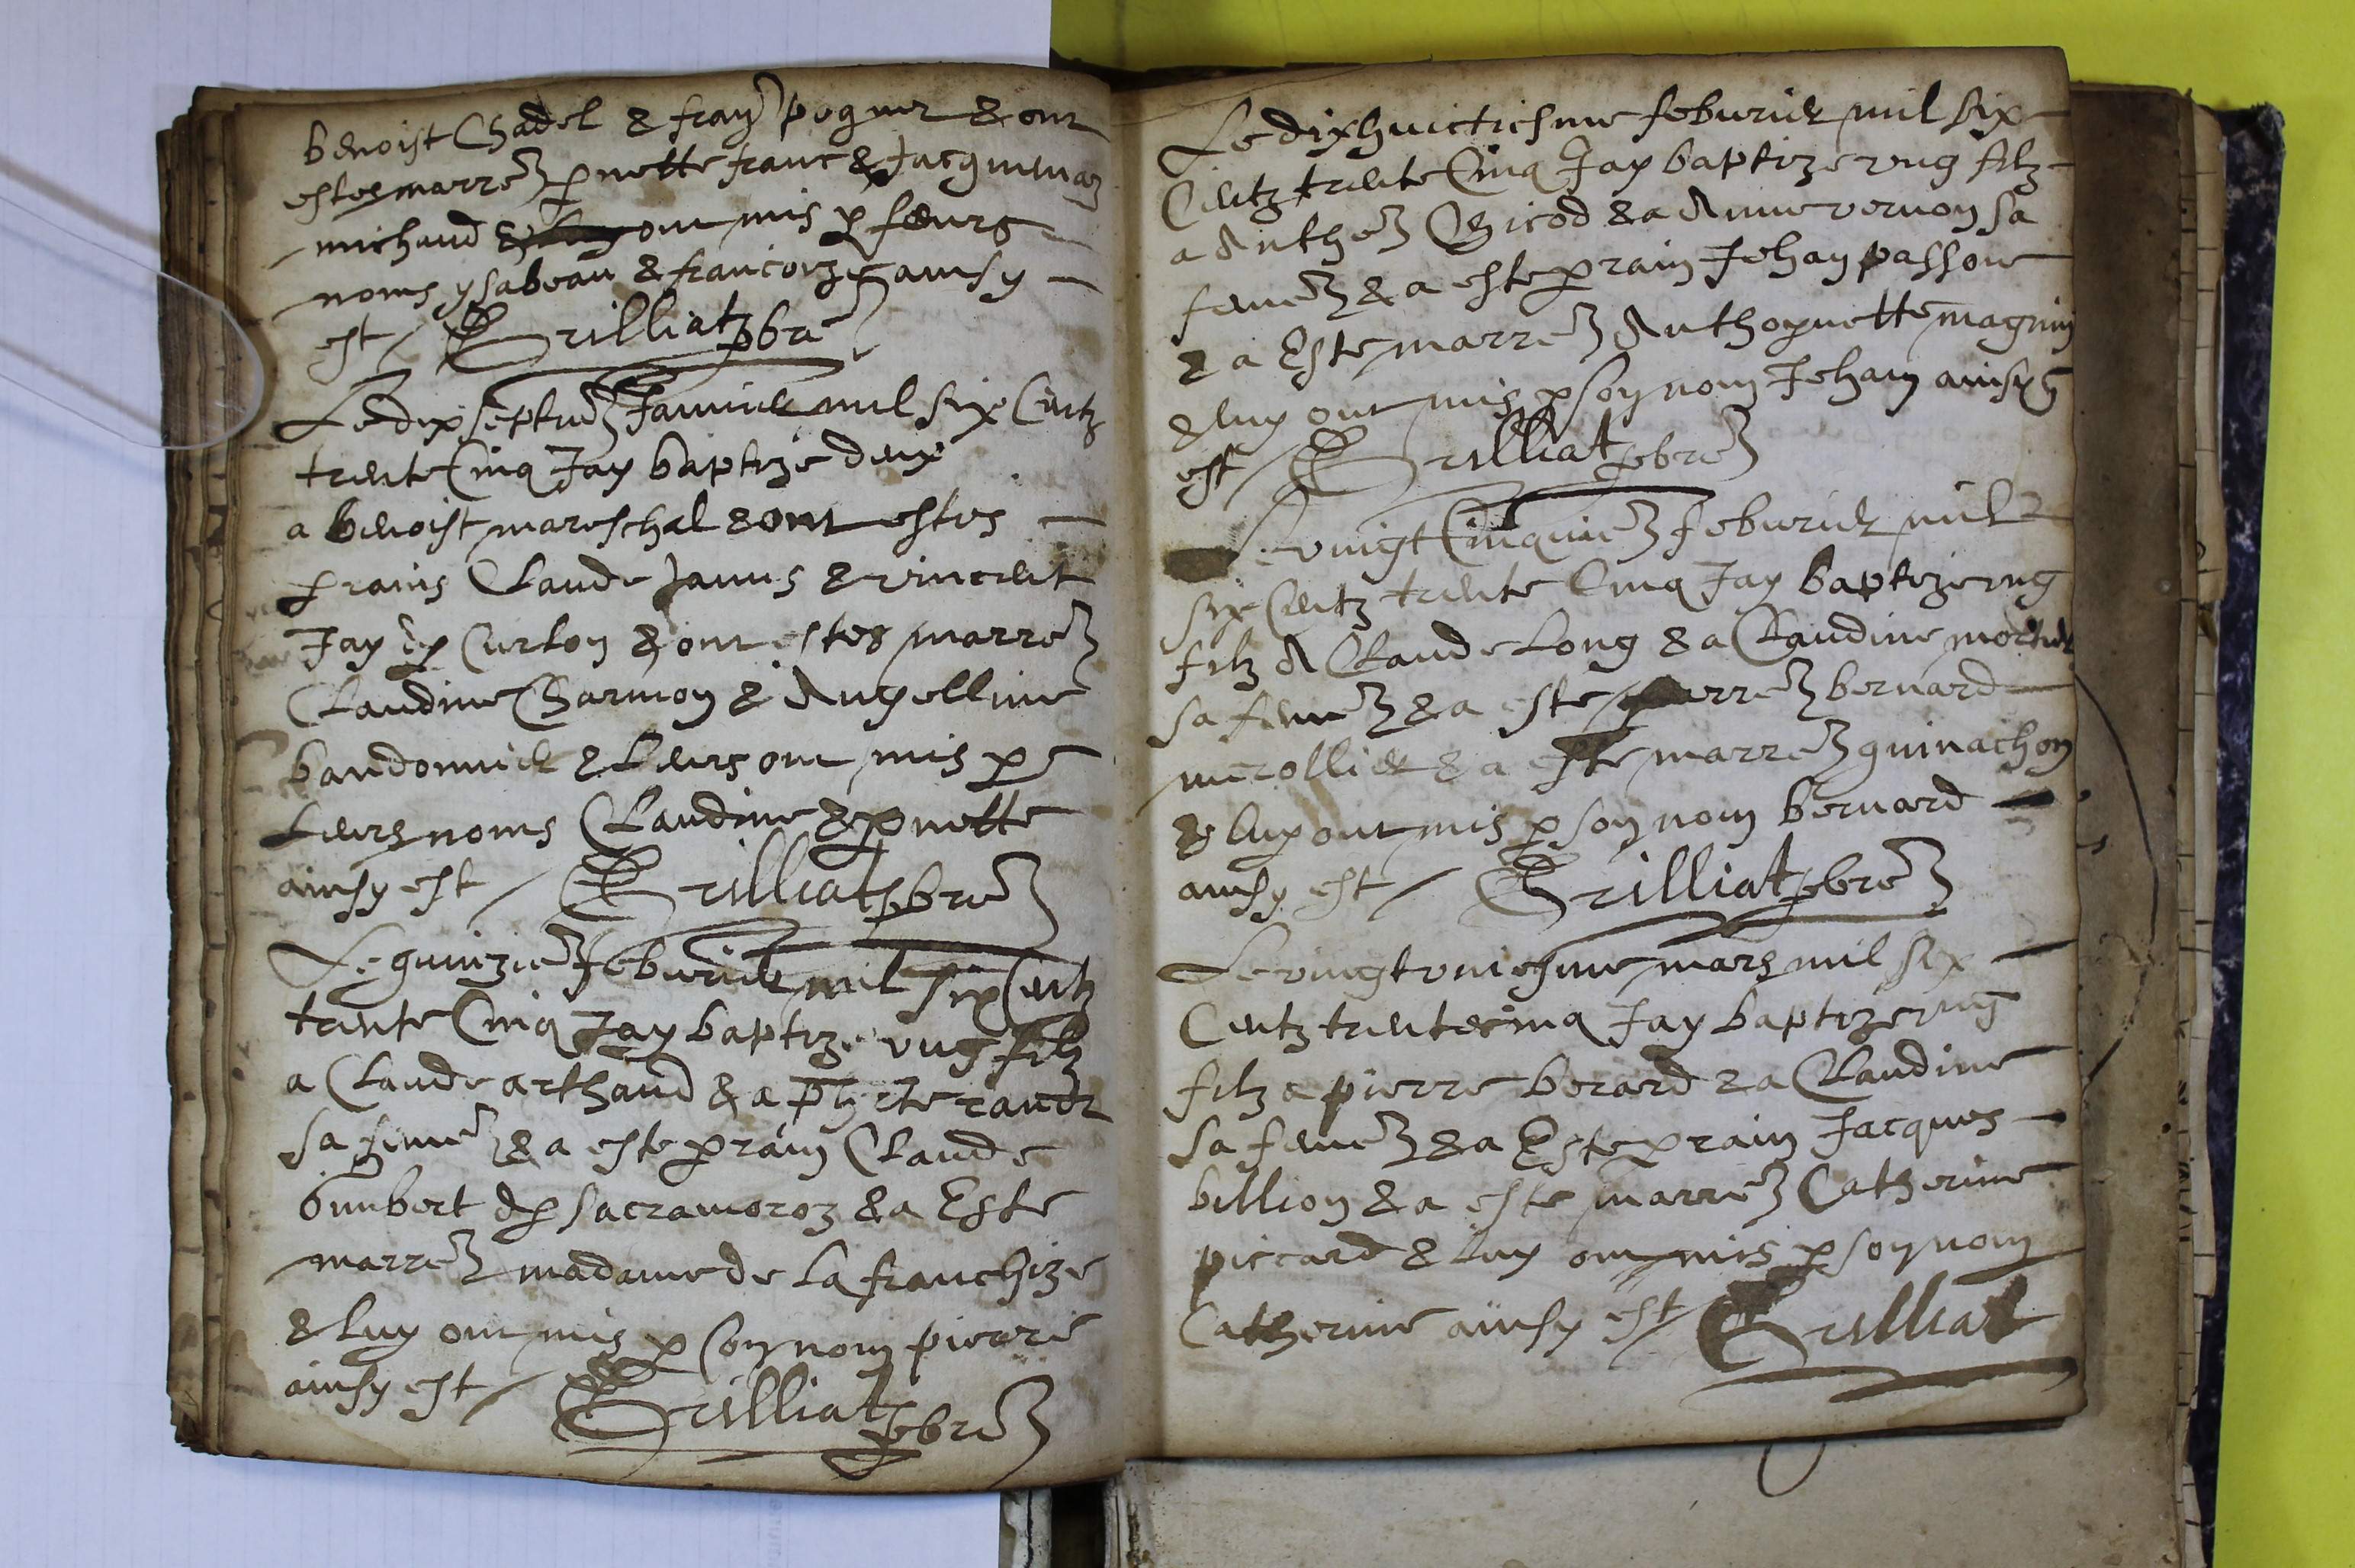 benoist Chadel & fray pogner & ont
estes marre pnette franc & Jacquemaz
michaud & ont mis p leurs
noms ysabeau & francoize ainsy
est Grilliat pbre
Le dix septie Janvier mil six Centz
trente Cinq Jay baptize deux
a benoist mareschal & ont estes
prains Claude Janus & vincent
Jay Curton & ont estes marre
Claudine Charmon & Angelline
baudonnier & Leurs ont mis p
Leurs noms Claudine & pnette
ainsy est Grilliat pbre
Le quinzie febvrier mil six Centz
trente Cinq Jay baptize ung filz
a Claude arthaud & a
sa feme & a este prain Claude
humbert sacramoroz & a Este
marre madame de La franchize
& luy ont mis p son nom pierre
ainsy est Grilliat pbre
Le dixhuictiesme febvrier mil six
Centz trente Cinq Jay baptize ung filz
a Anthe Gicod & a Anne vernon sa
feme & a este prain Jehan passone
& a Este marre Anthoynette magnin
& luy ont mis p son nom Jehan ainsy
est Grilliat pbre
Le vingt Cinquie febvrier mil
six Centz trente Cinq Jay baptize ung
filz A Claude Long & a Claudine
sa feme & a este bernard
merollier & a este marre guinachon
& luy ont mis p son nom bernard
ainsy est Grilliat pbre
Le vingt uniesme mars mil six
Centz trente cinq Jay baptize ung
filz a pierre berard & a Claudine
sa feme & a Este prain Jacques
billion & a este marre Catherine
piccard & luy ont mis p son nom
Catherine ainsy est Grilliat